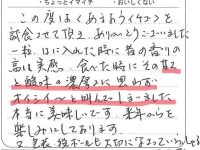 ・ちょっとイマイチ ・おいしくない
この度は（あまおうイチゴ）を
試食させて頂き ありがとうございました
一粒 口に入れた時に 昔の香りの
高い 実感 食べた時に その甘さ
と酸味の濃厚さに 思わず
オイシイ〜と叫んでしまいました
本当に美味しいです。来年からも
楽しみにしております。
又 段ボールも大切に